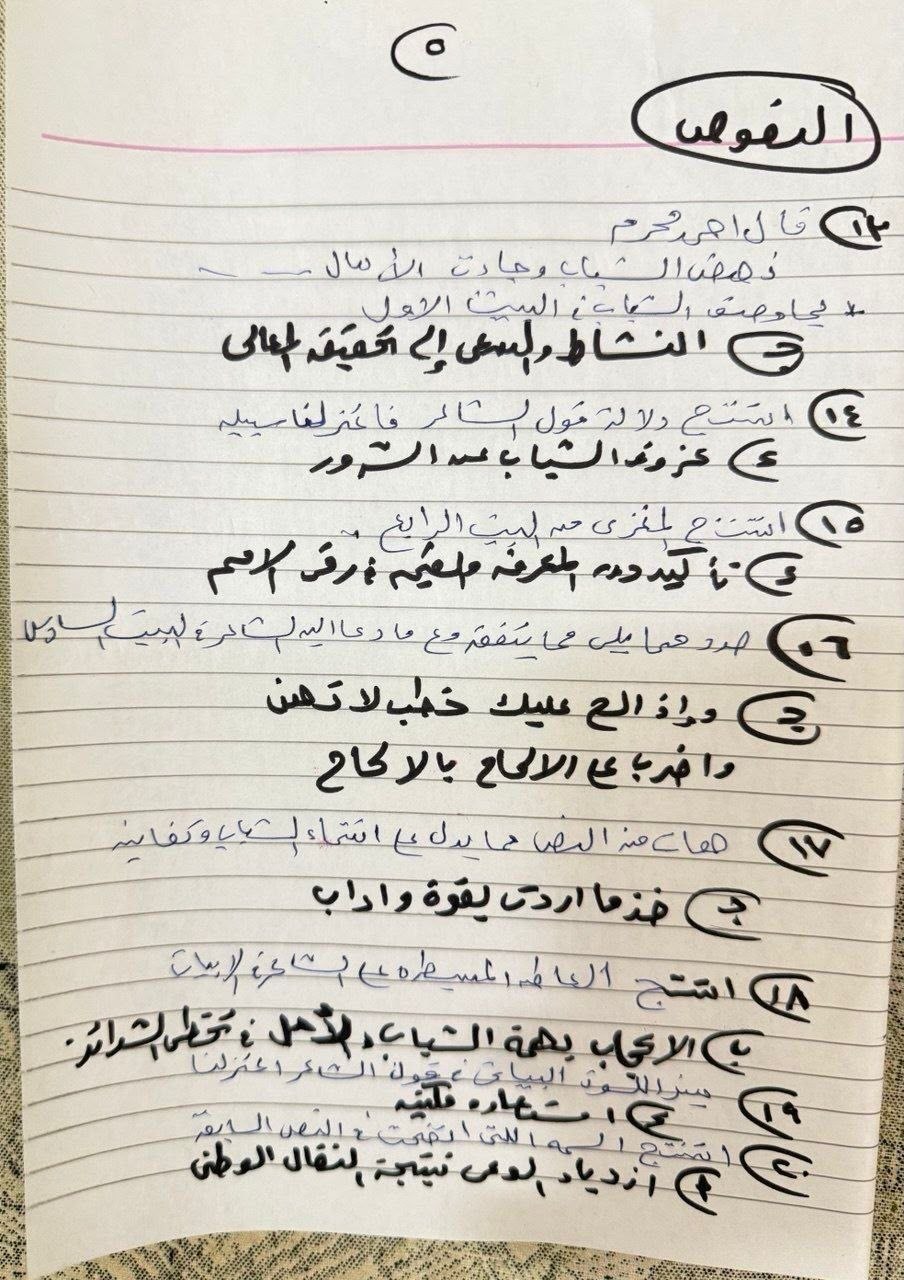 ٥
النصوص
١٣ قال احمد محرم
نهض الشباب وجادت الآمال
* بما وصف الشباب في البيت الاول
ج النشاط والسعى إلى تحقيق المعالى
١٤ استنتج دلالة قول الشاعر
د عزوف الشباب عن الشرور
١٥ استنتج المغزى من البيت الرابع
د تأكيد دور المعرفة والقيم في رقى الامم
١٦ حدد مما يلى مما يتفق مع ما دعا اليه الشاعر في البيت السادس
ج وإذا الح عليك خطب لا تهن
واضرب على الالحاح بالالحاح
١٧ هات من النص مما يدل على انتماء الشباب وكفاحه
ج خذ ما اردت بقوة واداب
١٨ استنتج العاطفة المسيطرة على الشاعر في الابيات
ب الاعجاب بهمة الشباب والأمل في تخطى الشدائد
١٩ ميز اللون البيانى في قول الشاعر
استعاره مكنيه
٢٠ استنتج السمه اللتى اتضحت في النص السابق
أ ازدياد الوعى نتيجة النضال الوطنى